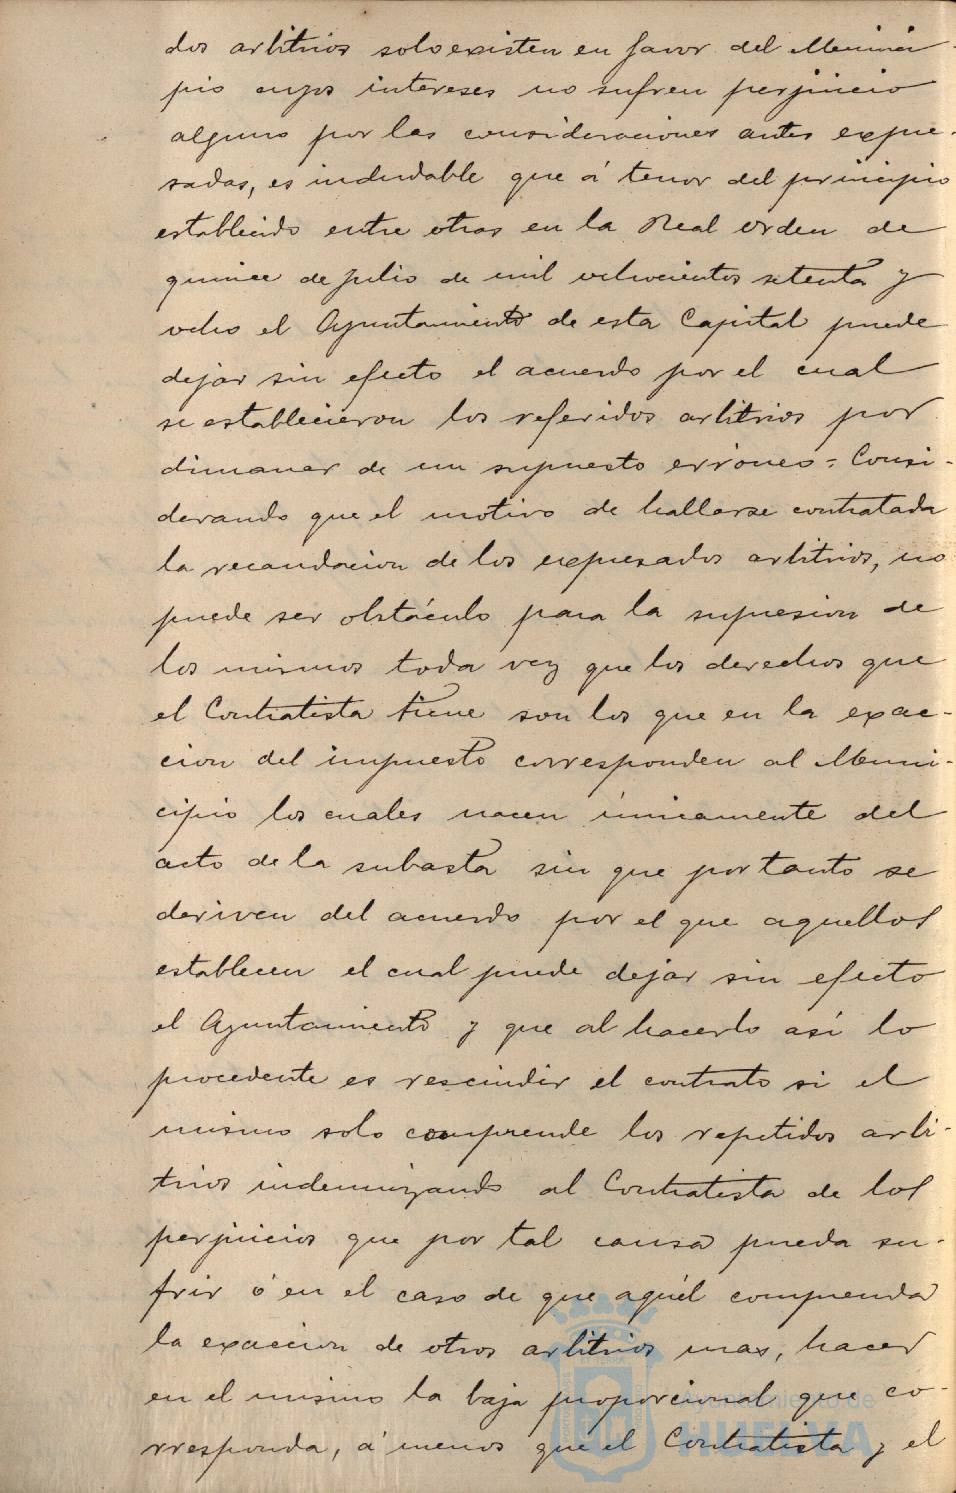 dos arbitrios solo existen en favor del Munici-
pio cuyos intereses no sufren perjuicio
alguno por las consideraciones antes expre-
sadas, es indudable que á tenor del principio
establecido entre otras en la Real orden de
quince de julio de mil ochocientos setenta y
ocho el Ayuntamiento de esta Capital puede
dejar sin efecto el acuerdo por el cual
se establecieron los referidos arbitrios por
dimanar de un supuesto erróneo = Consi-
derando que el motivo de hallarse contratada
la recaudacion de los expresados arbitrios, no
puede ser obstáculo para la supresion de
los mismos toda vez que los derechos que
el Contratista tiene son los que en la exac-
cion del impuesto corresponden al Muni-
cipio los cuales nacen únicamente del
acto de la subasta sin que por tanto se
deriven del acuerdo por el que aquellos
establecen el cual puede dejar sin efecto
el Ayuntamiento y que al hacerlo así lo
procedente es rescindir el contrato si el
mismo solo comprende los repetidos arbi-
trios indemnizando al Contratista de los
perjuicios que por tal causa pueda su-
frir ó en el caso de que aquél comprenda
la exaccion de otros arbitrios mas, hacer
en el mismo la baja proporcional que co-
rresponda, á menos que el Contratista y el
Ayuntamiento de
HUELVA